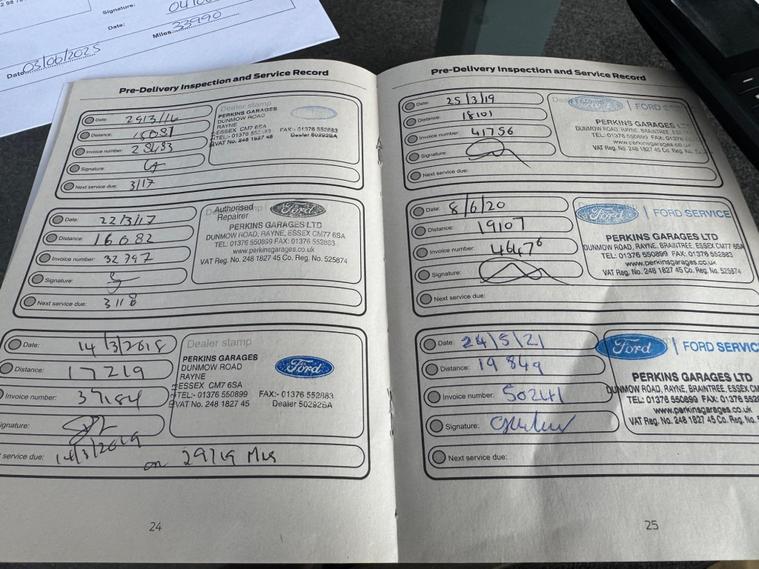 Signature:
Date:
Miles 33990
Date 03/06/2025
Pre-Delivery Inspection and Service Record
Date: 29/3/16
Distance:
Invoice number: 28683
Signature:
Next service due: 3/17
Dealer stamp
PERKINS GARAGES
DUNMOW ROAD
RAYNE
ESSEX CM7 6SA
FAX:- 01376 552883
VAT No. 248 1827 45 Dealer 50292BA
Date: 22/3/17
Distance: 16082
Invoice number: 32797
Signature:
Next service due: 3/18
Authorised
Repairer
Ford
PERKINS GARAGES LTD
DUNMOW ROAD, RAYNE, ESSEX CM77 6SA
TEL: 01376 550899 FAX: 01376 552883
www.perkinsgarages.co.uk
VAT Reg. No. 248 1827 45 Co. Reg. No. 525874
Date: 14/3/2018
Distance: 17219
Invoice number: 37184
Signature:
service due: 14/3/2019 on 29719 Mls
Dealer stamp
PERKINS GARAGES
DUNMOW ROAD
RAYNE
ESSEX CM7 6SA
TEL:- 01376 550899 FAX:- 01376 552883
VAT No. 248 1827 45 Dealer 50292BA
Ford
24
Pre-Delivery Inspection and Service Record
Date: 25/3/19
Distance: 18101
Invoice number: 41756
Signature:
Next service due:
FORD
PERKINS GARAGES LTD
DUNMOW ROAD, RAYNE, BRAINTREE, ESSEX
TEL: 01376 550899 FAX: 01376 552883
www.perkinsgarages.co.uk
VAT Reg. No. 248 1827 45 Co. Reg. No.
Date: 8/6/20
Distance: 19107
Invoice number: 46476
Signature:
Next service due:
Ford | FORD SERVICE
PERKINS GARAGES LTD
DUNMOW ROAD, RAYNE, BRAINTREE, ESSEX CM77 6SA
TEL: 01376 550899 FAX: 01376 552883
www.perkinsgarages.co.uk
VAT Reg. No. 248 1827 45 Co. Reg. No. 525874
Date: 24/5/21
Distance: 19849
Invoice number: 50241
Signature:
Next service due:
Ford | FORD SERVIC
PERKINS GARAGES LTD
DUNMOW ROAD, RAYNE, BRAINTREE, ESSEX CM
TEL: 01376 550899 FAX: 01376 5528
www.perkinsgarages.co.uk
VAT Reg. No. 248 1827 45 Co. Reg. No.
25